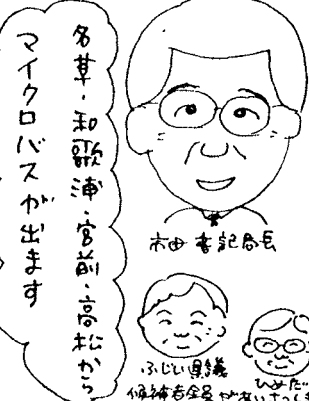 名草・和歌浦・宮前・高松から
マイクロバスが出ます
市田書記局長
ふじい県議
ひめだ
候補者全員があいさつしま